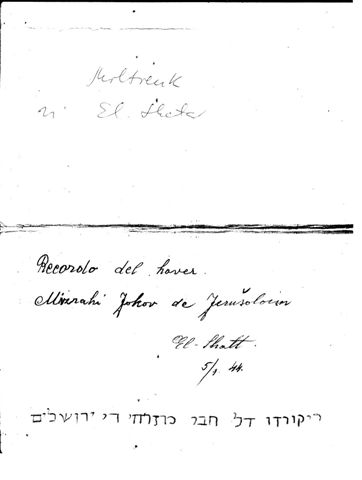 El Shatt
Recordo del haver
Mizrahi Jakov de Jerušolaim
El-Shatt.
5/1. 44.
ריקורדו דל חבר מזרחי די ירושלים